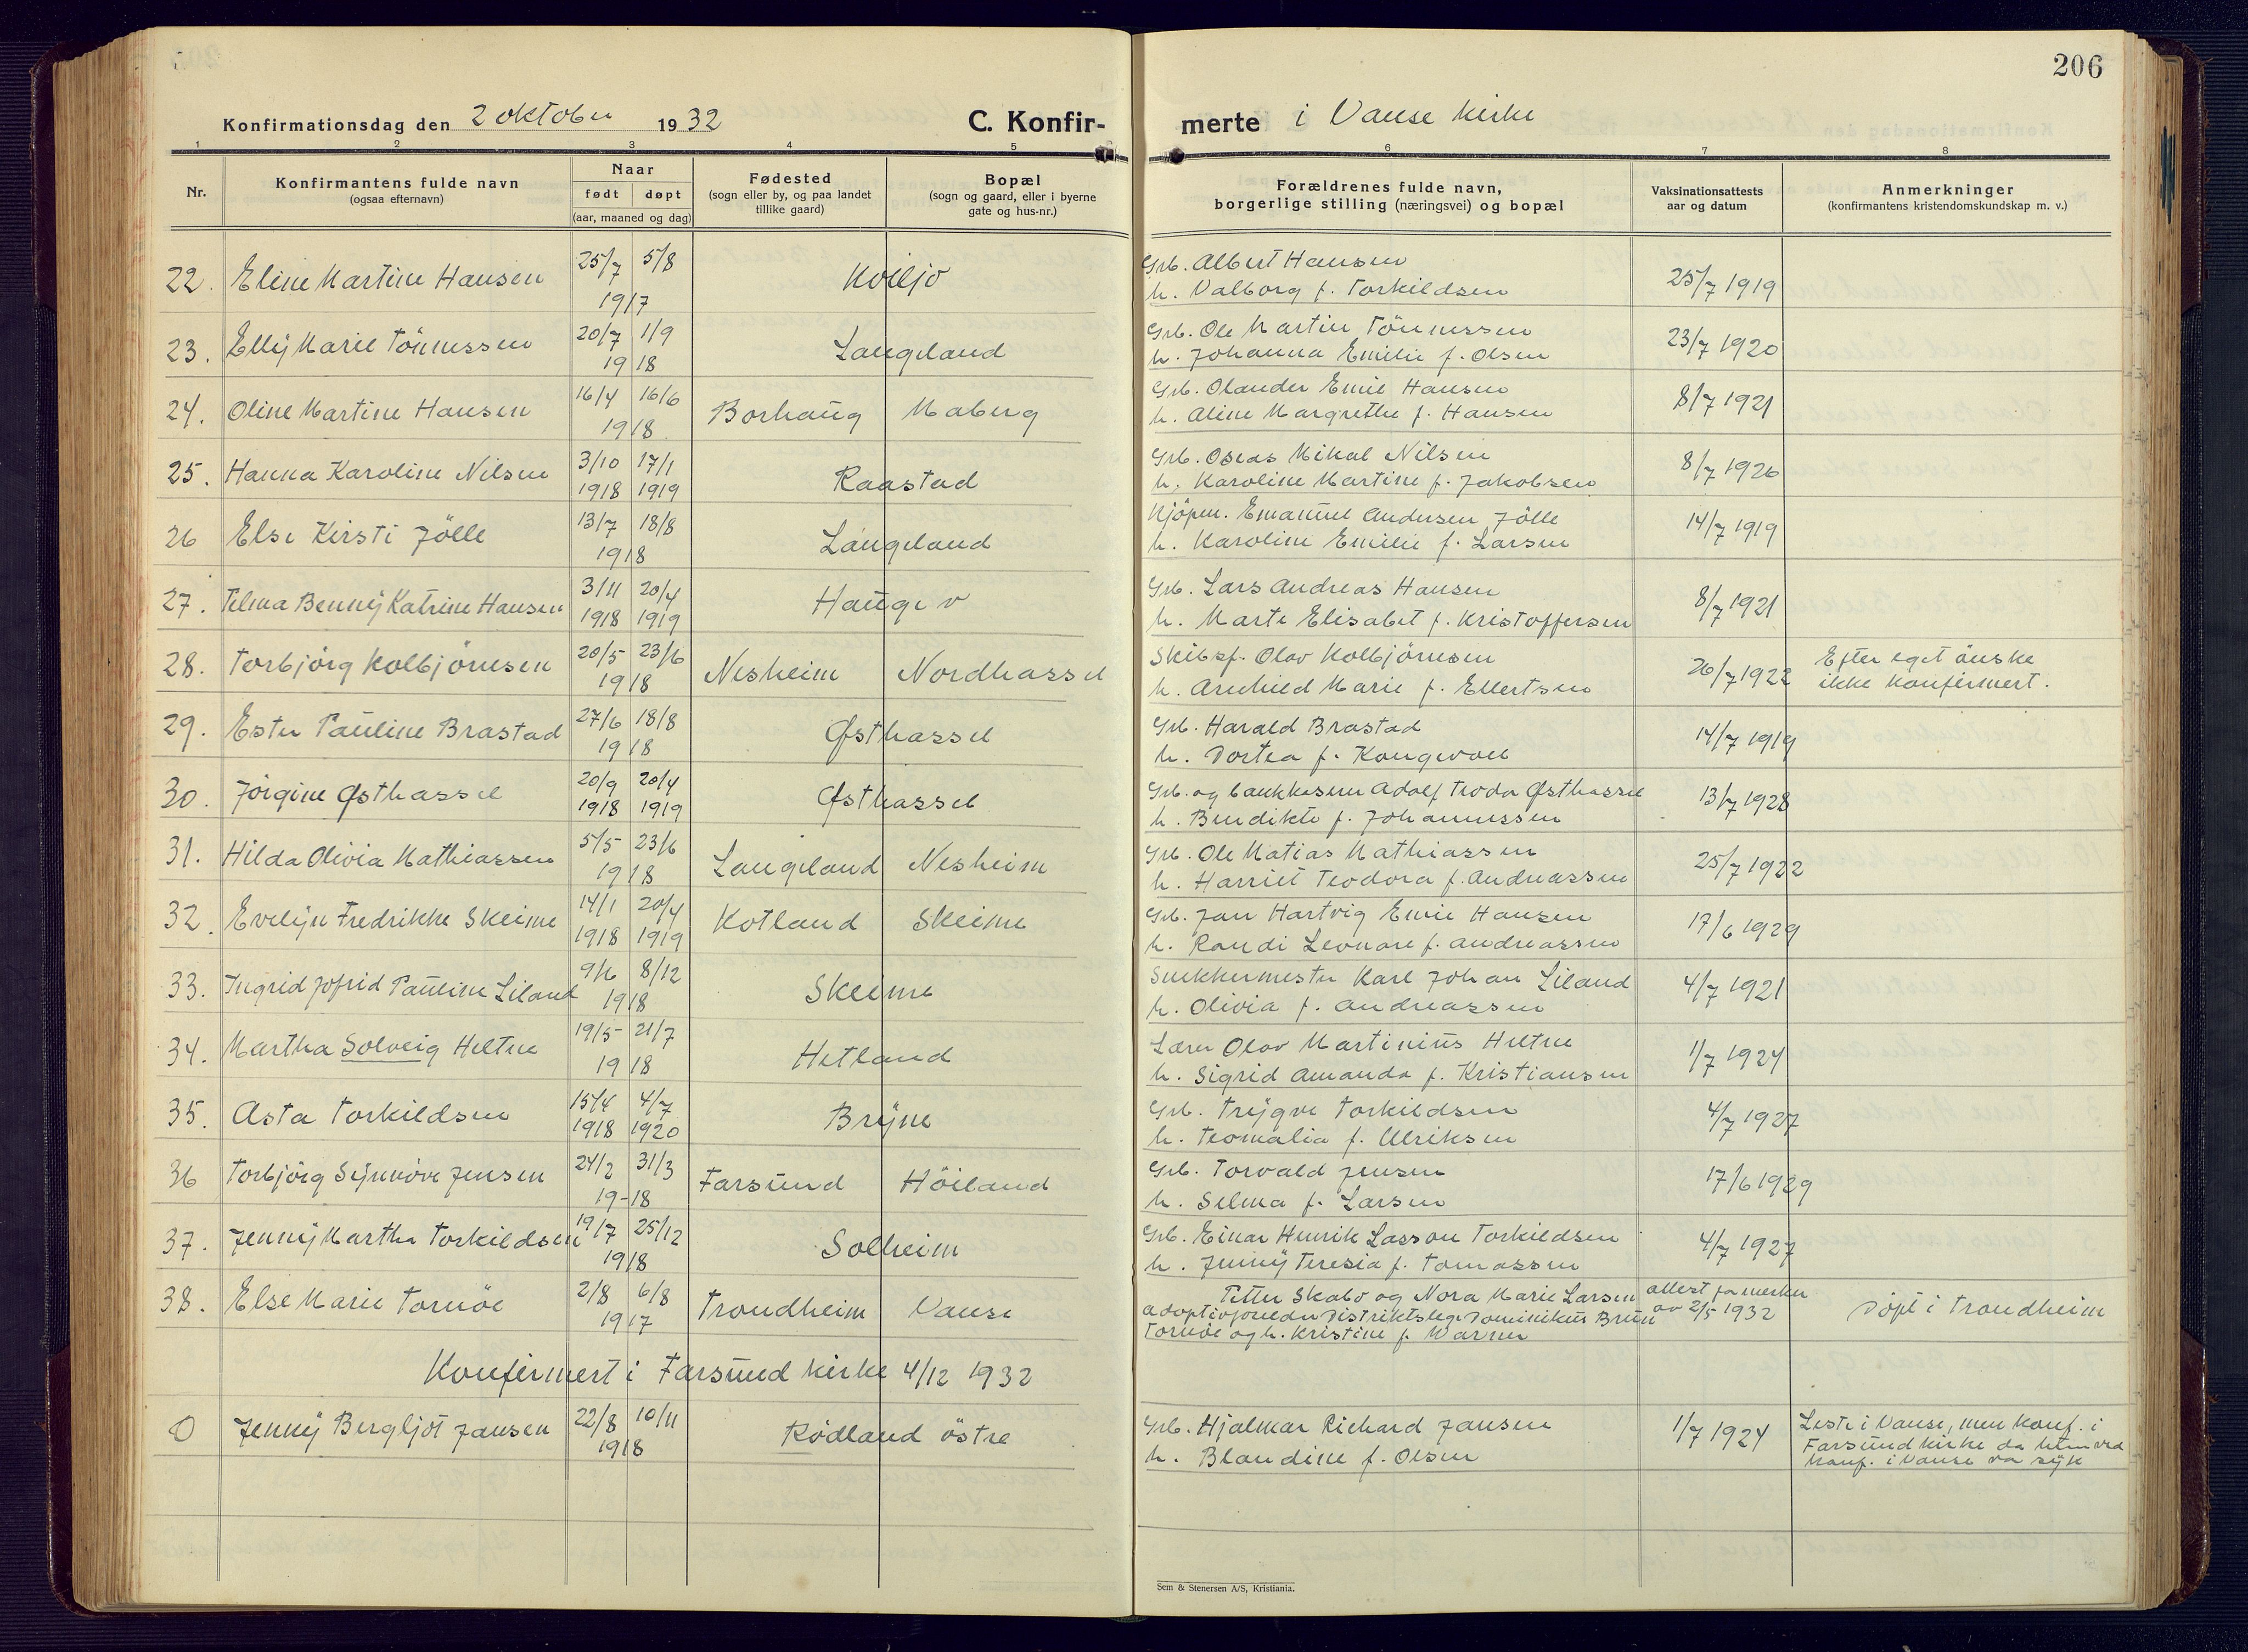 206
Konfirmationsdag den 2 oktober 1932
C. Konfir-
merte i Vanse kirke
1 2 3 4 5 6 7 8
Nr.
Konfirmantens fulde navn
(ogsaa efternavn)
Naar
født døpt
(aar, maaned og dag)
Fødested
(sogn eller by, og paa landet
tillike gaard)
Bopæl
(sogn og gaard, eller i byerne
gate og hus-nr.)
Forældrenes fulde navn,
borgerlige stilling (næringsvei) og bopæl
Vaksinationsattests
aar og datum
Anmerkninger
(konfirmantens kristendomskundskap m. v.)
22. Eline Martine Hansen 25/7 5/8 1917 Kviljo
Grb. Albert Hansen
h. Valborg f. Torkildsen
25/7 1919
23. Elly Marie Tönnessen 20/7 1/9 1918 Langeland
Grb. Ole Martin Tönnessen
h. Johanna Emilie f. Olsen
23/7 1920
24. Oline Martine Hansen 16/4 16/6 1918 Borhaug Maberg
Grb. Olander Emil Hansen
h. Aline Margrethe f. Hansen
8/7 1921
25. Hanna Karoline Nilsen 3/10 1918 17/1 1919 Raastad
Grb. Oseas Mikal Nilsen
h. Karoline Martine f. Jakobsen
8/7 1926
26 Else Kirsti Jölle 13/7 18/8 1918 Langeland
Kjöpm. Emanuel Andersen Jölle
h. Karoline Emilie f. Larsen
14/7 1919
27. Telma Benny Katrine Hansen 3/11 1918 20/4 1919 Hauge v
Grb. Lars Andreas Hansen
h. Marte Elisabet f. Kristoffersen
8/7 1921
28. Torbjörg Kolbjörnsen 20/5 23/6 1918 Nesheim Nordhassel
Skibsf. Olav Kolbjörnsen
h. Arnhild Marie f. Ellertsen
26/7 1922
Efter eget önske
ikke konfirmert.
29. Ester Pauline Brastad 27/6 18/8 1918 Østhassel
Grb. Harald Brastad
h. Dortea f. Kongevold
14/7 1919
30. Jörgine Østhassel 20/9 1918 20/4 1919 Østhassel
Grb. og bankkaserer Adolf Teodor Østhassel
h. Bendikte f. Johannessen
13/7 1928
31. Hilda Olivia Mathiassen 5/5 23/6 1918 Langeland Nesheim
Grb. Ole Matias Mathiassen
h. Harriet Teodora f. Andreassen
25/7 1922
32. Evelyn Fredrikke Skeime 14/1 1918 20/4 1919 Kotland Skeime
Grb. Jan Hartvig Emil Hansen
h. Randi Leonare f. Andreassen
17/6 1929
33. Ingrid Jofrid Pauline Liland 9/6 8/12 1918 Skeime
Snekkermester Karl Johan Liland
h. Olivia f. Andreassen
4/7 1921
34. Martha Solveig Heltne 19/5 21/7 1918 Hetland
Lærer Olav Martinius Heltne
h. Sigrid Amanda f. Kristiansen
1/7 1924
35. Asta Torkildsen 15/4 1918 4/7 1920 Bryne
Grb. Trygve Torkildsen
h. Teomalia f. Ulriksen
4/7 1927
36 Torbjörg Synnöve Jensen 24/2 31/3 19-18 Farsund Höiland
Grb. Torvald Jensen
h. Selma f. Larsen
17/6 1929
37. Jenny Martha Torkildsen 19/7 25/12 1918 Solheim
Grb. Einar Henrik Lasson Torkildsen
h. Jenny Teresia f. Tomassen
4/7 1927
38. Else Marie Tornöe 2/8 6/8 1917 Trondheim Vanse
Petter Skabo og Nora Marie Larsen
adoptivforelder Distriktslege Dominikus Brun
Tornöe og h. Kristine f. Warner
attest
av 2/5 1932
Döpt i Trondheim
Konfirmert i Farsund kirke 4/12 1932
0 Jenny Bergljot Jansen 22/8 10/11 1918 Rödland östre
Grb. Hjalmar Richard Jansen
h. Blandine f. Olsen
1/7 1924
Leste i Vanse, men konf. i
Farsund kirke da hun ved
konf. i Vanse var syk
Sem & Stenersen A/S, Kristiania.